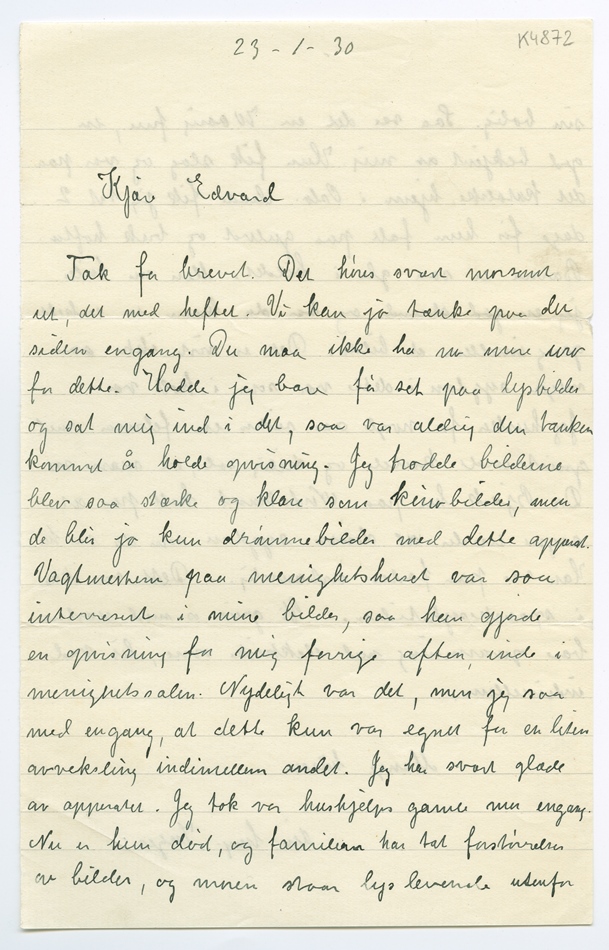 23-1-30
K4872
Kjære Edvard
Tak for brevet. Det høres svært morsomt
ut, det med heftet. Vi kan jo tænke paa det
siden engang. Du maa ikke ha no mere uro
for dette. Hadde jeg bare fåt set paa lysbilder
og sat mig ind i det, saa var aldrig den tanken
kommet å holde opvisning. Jeg trodde bilderne
blev saa stærke og klare som kinobilder, men
de blir jo kun drømmebilder med dette apparat.
Vagtmesteren paa menighetshuset var saa
interresert i mine bilder, saa han gjorde
en opvisning for mig forrige aften, inde i
menighetssalen. Nydeligt var det, men jeg saa
med engang, at dette kun var egnet for en liten
avveksling indimellem andet. Jeg har svært glæde
av apparatet. Jeg tok vor huskjælps gamle mor engang.
Nu er hun død, og familien har tat forstørrelse
av bilder, og moren staar lys levende utenfor